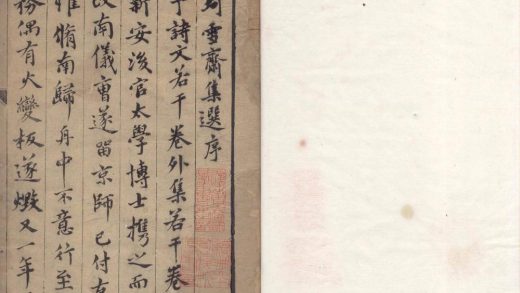 珂雪齋集選序
予詩文若干卷外集若干卷
新安後官太學博士携之而
改南儀曹遂留京師已付友
惟脩南歸舟中不意行至
務偶有火變板遂燬又一年